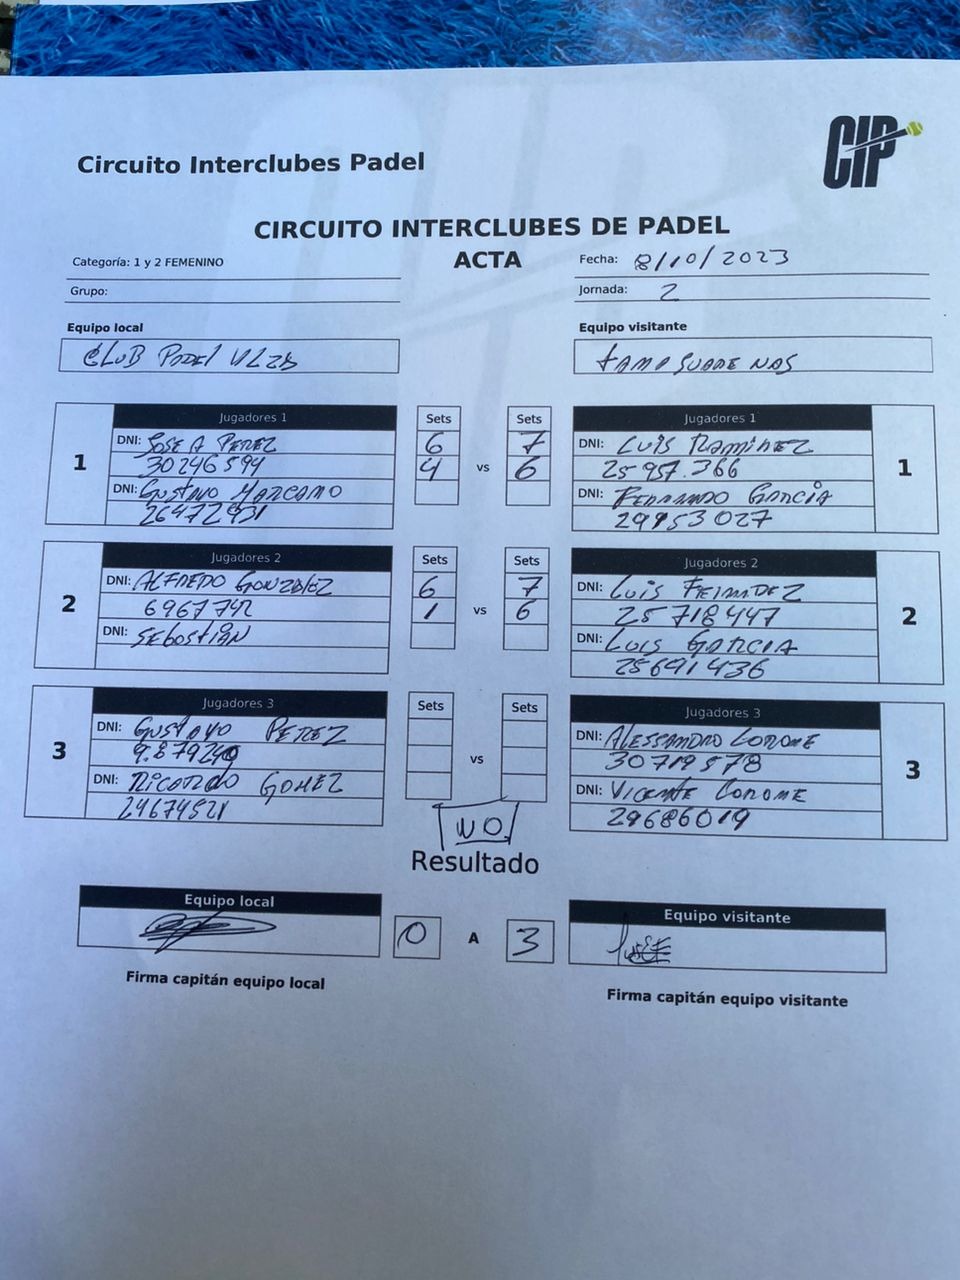 CIP
Circuito Interclubes Padel
CIRCUITO INTERCLUBES DE PADEL
ACTA
Categoría: 1 y 2 FEMENINO
Fecha: 8/10/2023
Grupo:
Jornada: 2
Equipo local
Equipo visitante
CLUB PADEL
Jugadores 1 Sets Sets Jugadores 1
1 DNI: JOSE A PEREZ 6 7 DNI: LUIS RAMIREZ 1
30246594 4 vs 6 25957.366
DNI: GUSTAVO MARCANO DNI: FERNANDO GARCIA
26472931 29953027
Jugadores 2 Sets Sets Jugadores 2
2 DNI: ALFREDO GONZALEZ 6 7 DNI: LUIS 2
6967742 1 vs 6 25718447
DNI: SEBASTIAN DNI: LUIS GARCIA
25691436
Jugadores 3 Sets Sets Jugadores 3
3 DNI: GUSTAVO PEREZ vs DNI: ALESSANDRO 3
30719578
DNI: RICARDO GOMEZ DNI: VICENTE
24674521 29686019
W.O.
Resultado
Equipo local Equipo visitante
0 A 3
Firma capitán equipo local
Firma capitán equipo visitante